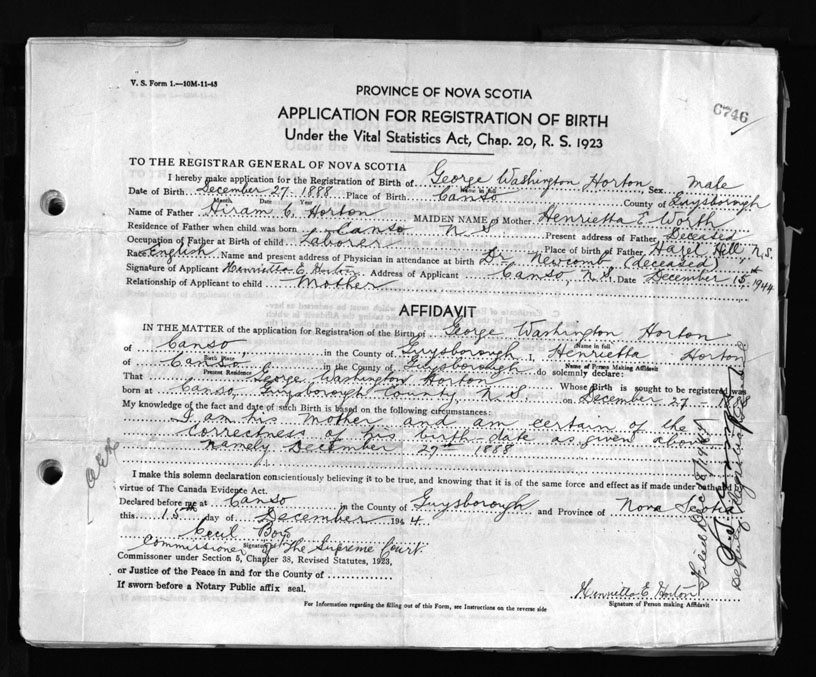 V. S. Form 1.—10M-11-43
PROVINCE OF NOVA SCOTIA
6746
APPLICATION FOR REGISTRATION OF BIRTH
Under the Vital Statistics Act, Chap. 20, R. S. 1923
TO THE REGISTRAR GENERAL OF NOVA SCOTIA
I hereby make application for the Registration of Birth of George Washington Horton, Sex Male
Name in full
Date of Birth December 27 1888 Place of Birth Canso County of Guysborough
Month Date Year
Name of Father Hiram C. Horton MAIDEN NAME of Mother Henrietta E. Worth
Residence of Father when child was born Canso N.S. Present address of Father Deceased
Occupation of Father at Birth of child Laborer Place of birth of Father Hazel Hill, N.S.
Race English Name and present address of Physician in attendance at birth Dr. Newcomb (deceased)
Signature of Applicant Henrietta E. Horton Address of Applicant Canso, N.S. Date December 15th 1944
Relationship of Applicant to child Mother
AFFIDAVIT
IN THE MATTER of the application for Registration of the Birth of George Washington Horton
Name in full
of Canso in the County of Guysborough I, Henrietta Horton
Birth Place Name of Person Making Affidavit
of Canso in the County of Guysborough do solemnly declare:
Present Residence
That George Washington Horton Whose Birth is sought to be registered was
born at Canso, Guysborough County, N.S. on December 27 - 1888
My knowledge of the fact and date of such Birth is based on the following circumstances:
I am his Mother and am certain of the
correctness of his birth date as given above
namely December 27th 1888
I make this solemn declaration conscientiously believing it to be true, and knowing that it is of the same force and effect as if made under oath and by
virtue of The Canada Evidence Act.
Declared before me at Canso in the County of Guysborough and Province of Nova Scotia
this 15th day of December 1944.
Cecil Boy
Signature of
Commissioner of The Supreme Court.
Commissioner under Section 5, Chapter 38, Revised Statutes, 1923,
or Justice of the Peace in and for the County of
If sworn before a Notary Public affix seal.
Henrietta E. Horton
Signature of Person making Affidavit
For Information regarding the filling out of this Form, see Instructions on the reverse side
Filed Dec 18/44
Deputy Registrar